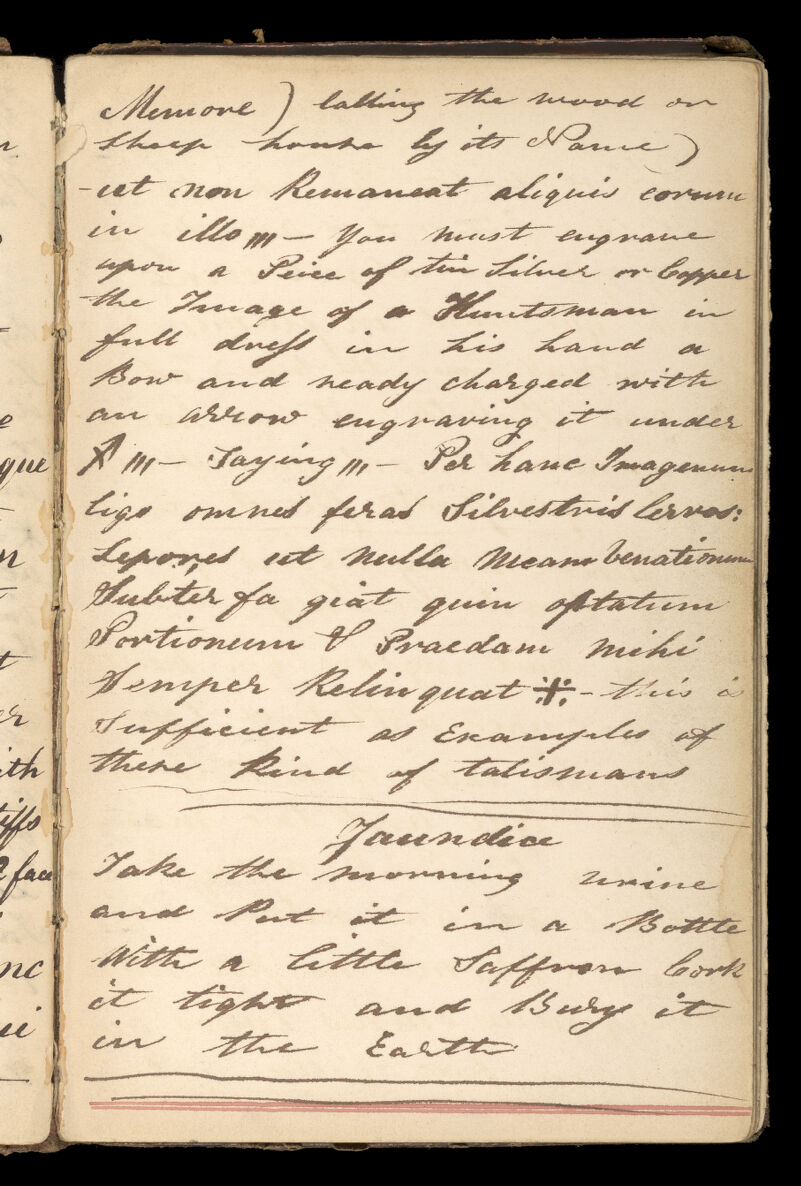 n
que
n
t
er
ith
tiffs
face
nc
ui
Memore) Calling the wood or
Sheep house by its Name)
-ut non Remaneat aliquis eorum
in illo ,,, — You must engrave
upon a Peice of tin Silver or Copper
the Image of a Huntsman in
full dress in his hand a
Bow and ready charged with
an arrow engraving it under
,,, — Saying ,,, — Per hanc Imagenum
ligo omnes feras Silvestris Cervos:
Lepores ut nulla meam Venationum
Subter fa giat quin optatum
Portionum & Praedam mihi
Semper Relinquat ⁜ - this is
Sufficient as Examples of
these kind of talismans
Jaundice
Take the morning urine
and Put it in a Bottle
With a little Saffron Cork
it tight and Bury it
in the Earth